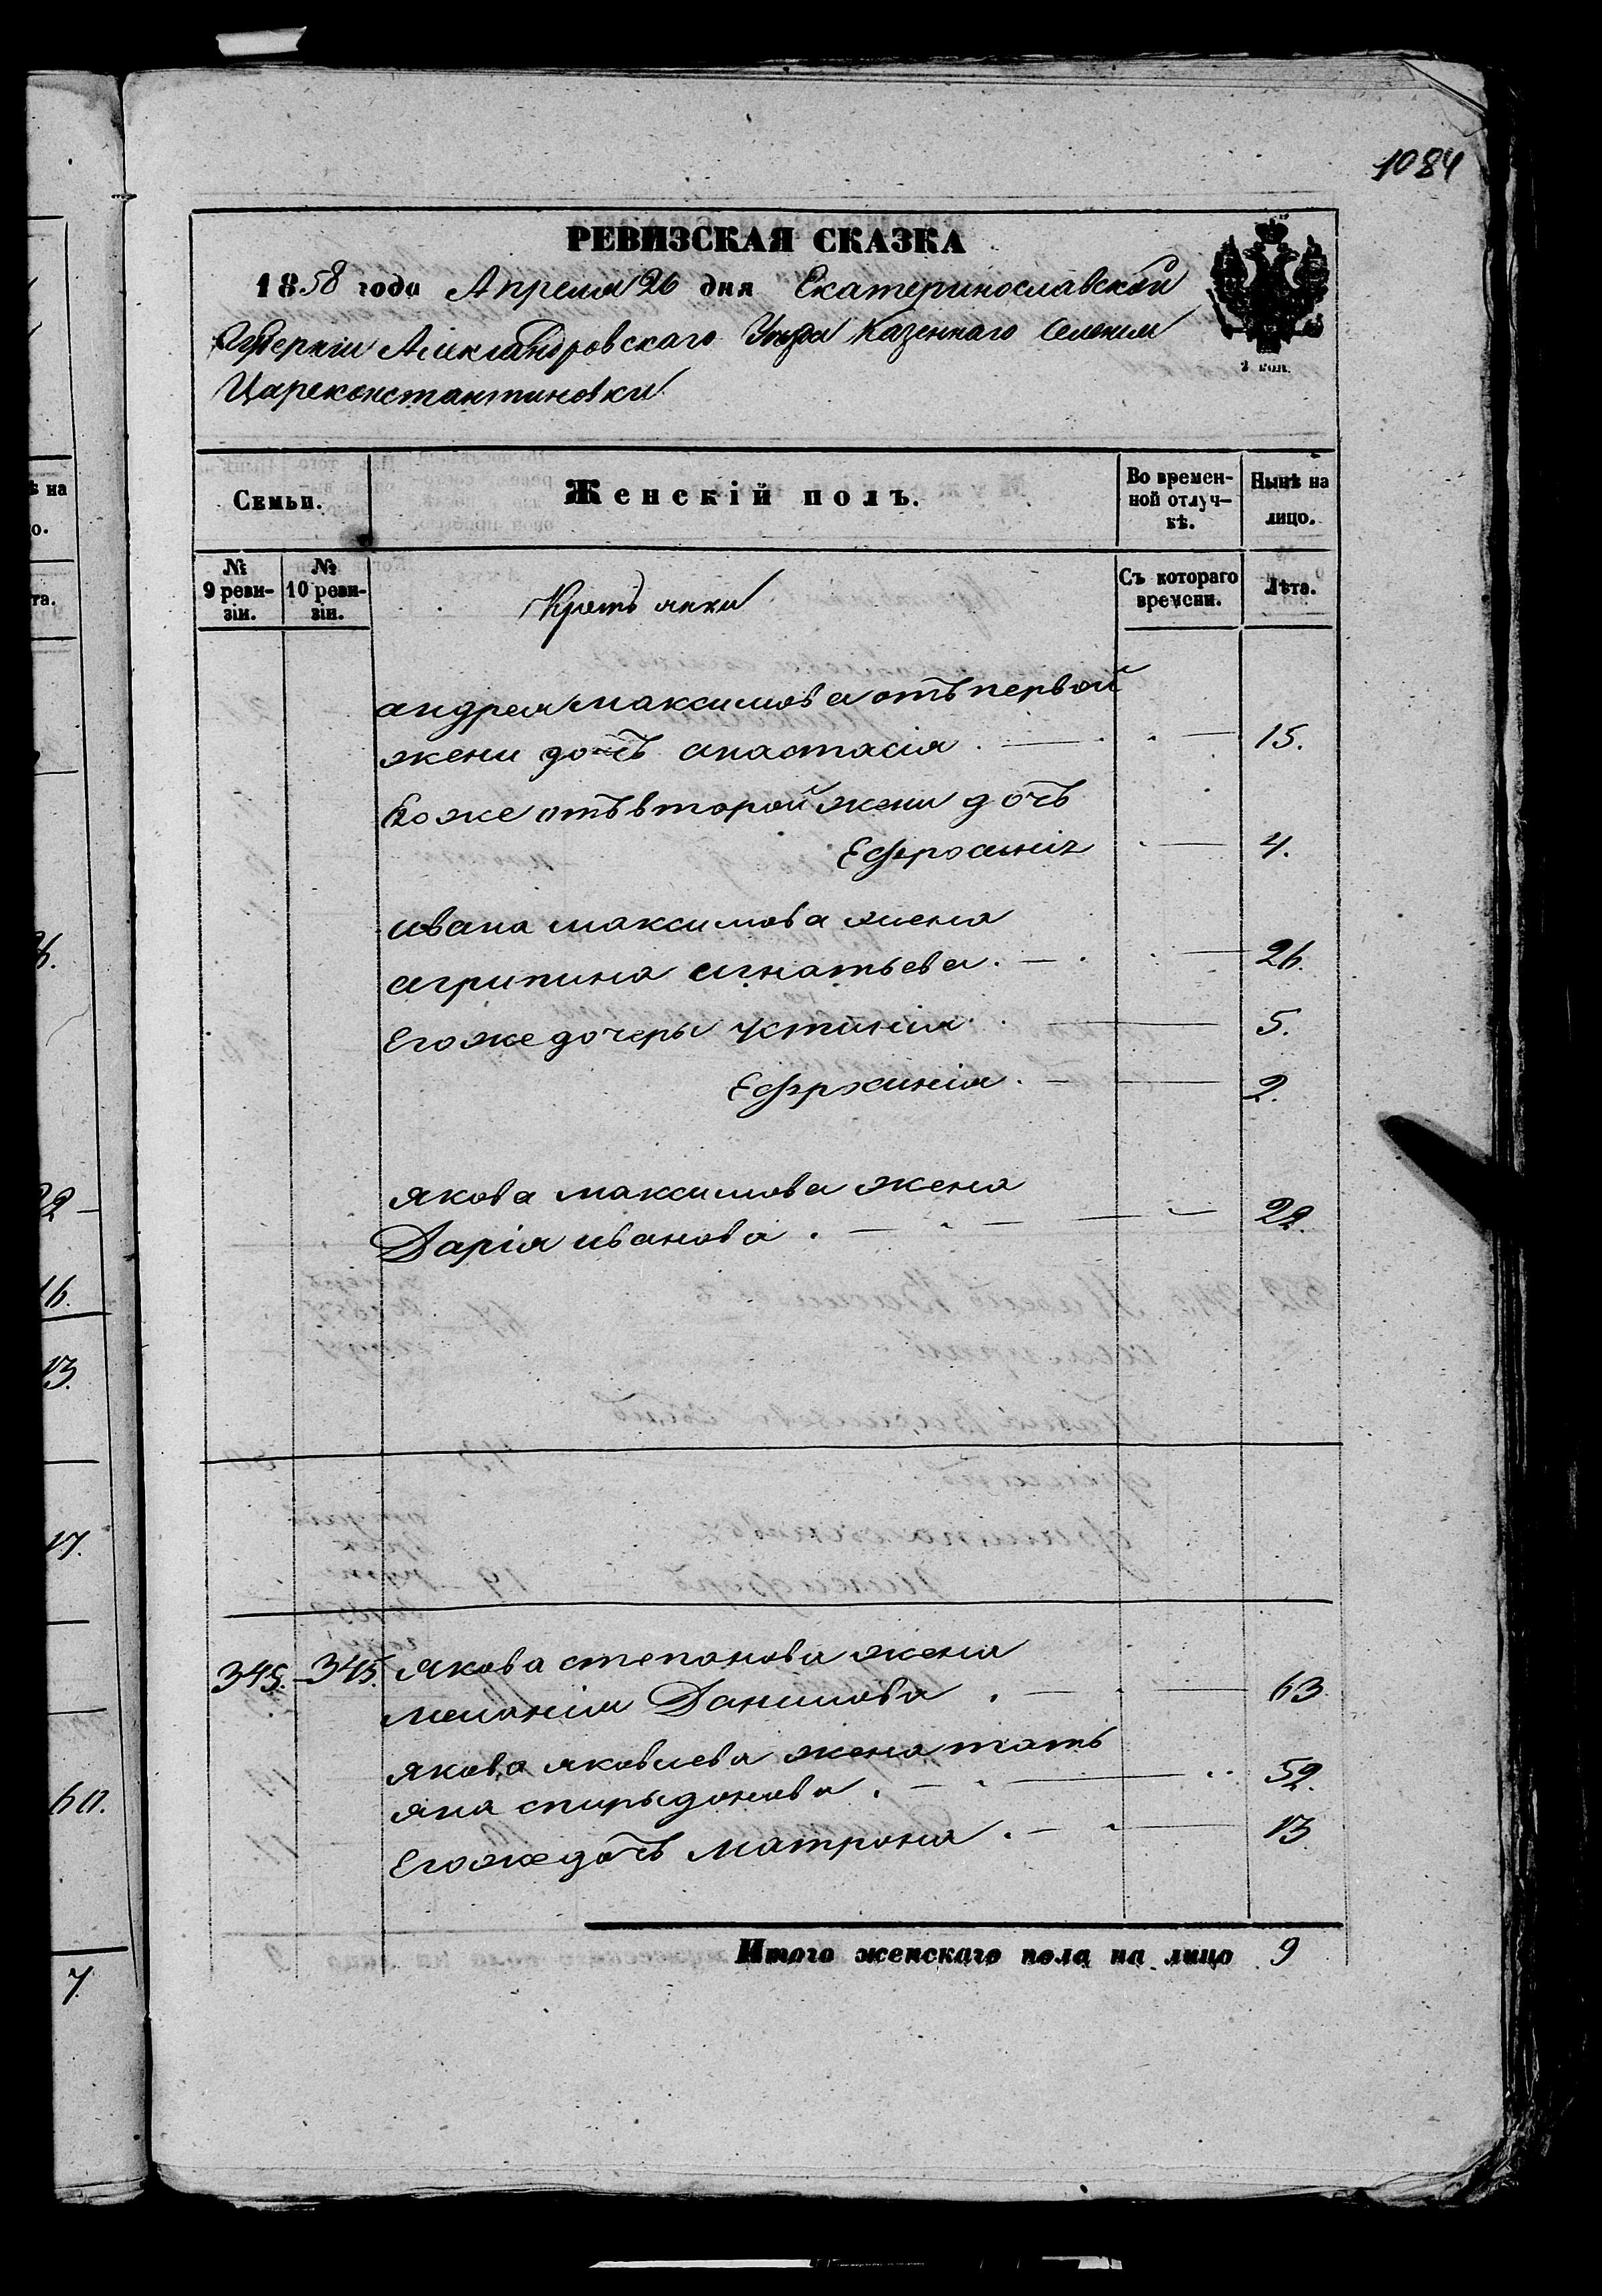 1084
РЕВИЗСКАЯ СКАЗКА
1858 года Апреля 26 дня Екатеринославской
Губернiи Александровскаго Уезда Казеннаго Селения
Цареконстантиновки
2 коп.
Семьи.
Женскій полъ.
Во времен-
ной отлуч-
кѣ.
Нынѣ на
лицо.
№
9 реви-
зіи.
№
10 реви-
зіи.
Съ котораго
времени.
Лѣта.
андрея максимова отъ первой
жени дочъ анастасія . — 15.
Его же отъ второй жени дочъ
Ефросинія — 4.
ивана максимова жена
агрипина игнатьева . — 26.
Его же дочеры устинія — 5.
Ефросинія . — 2.
якова максимова жена
Дарія иванова . — 22.
345. – 345. якова степанова жена
меланія Данилова . — 63
якова яковлева жена
спирыдонова . — 52.
Его же дочъ матрона . — 13
Итого женскаго пола на лицо 9
ѣ на
о.
та.
26.
22
16.
13.
17.
60.
7.